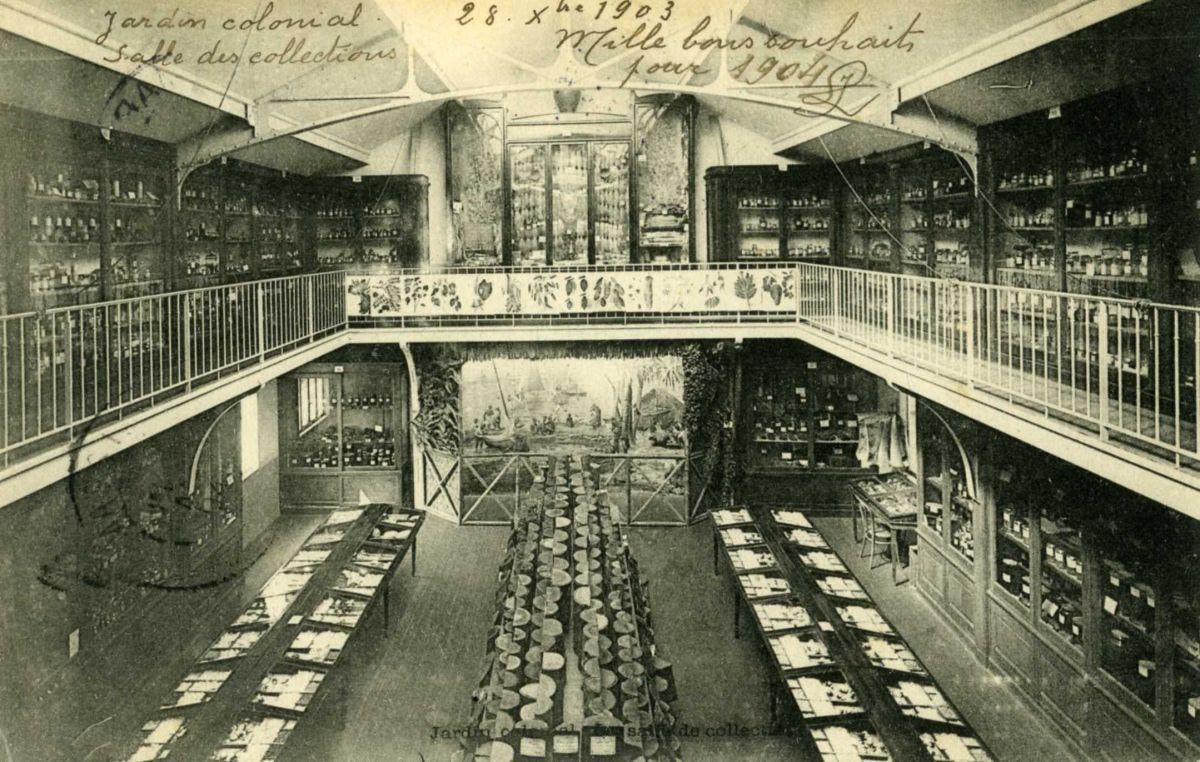 Jardin colonial.
Salle des collections
28. Xbre 1903
Mille bons souhaits
pour 1904
Jardin colonial salle de collection